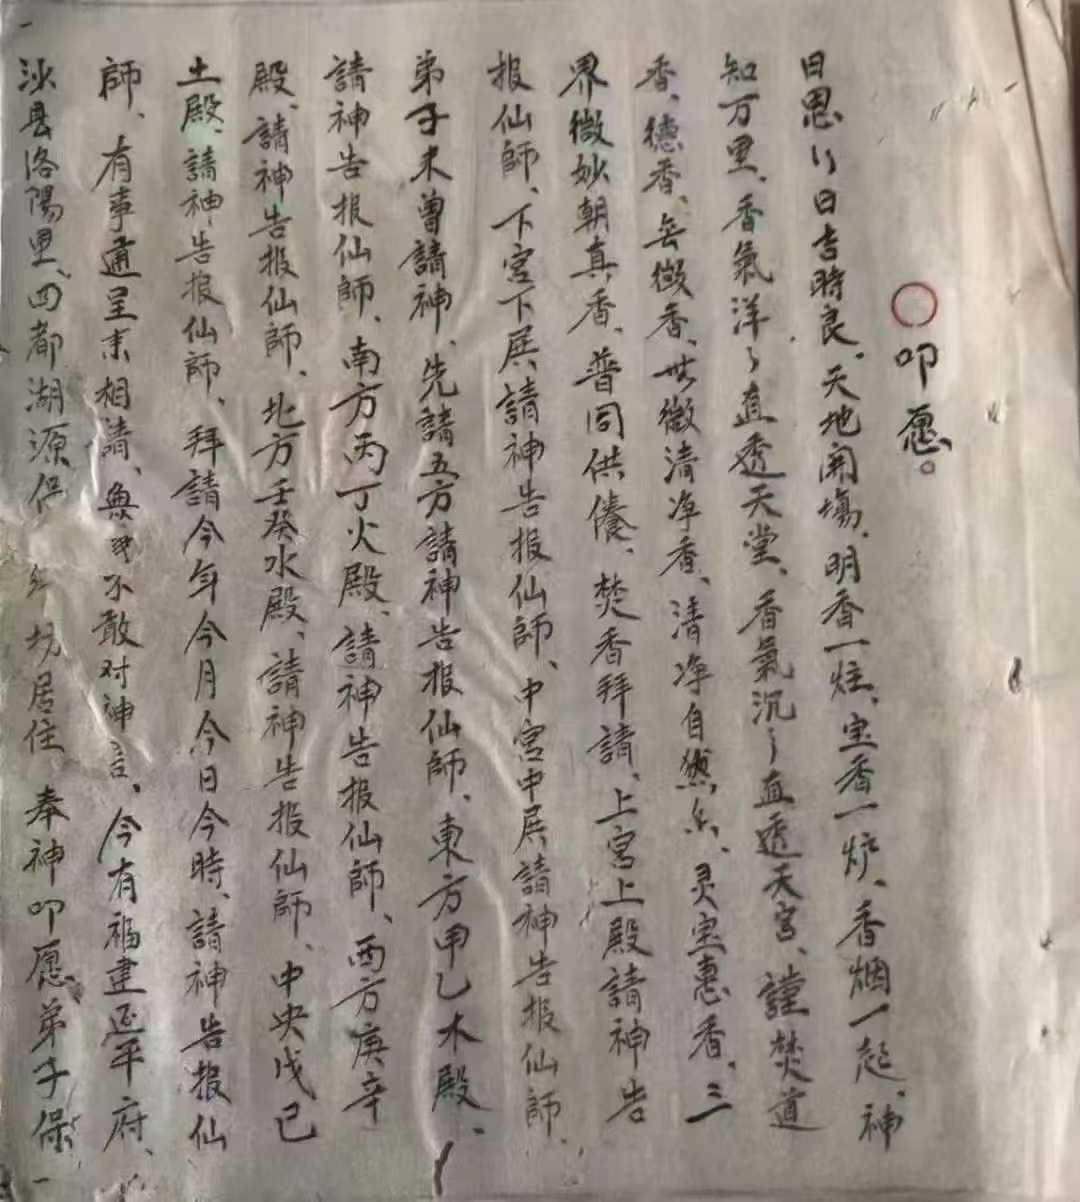 叩愿。
日恩〻日吉時良、天地開塲、明香一炷、宝香一炉、香烟一起、神
知万里、香氣洋〻直透天堂、香氣沉〻直透天宫、謹焚道
香、德香、無微香、世微清净香、清净自然香、灵宝惠香、三
界微妙朝真香、普同供養、焚香拜請、上宫上殿請神告
报仙師、下宫下展請神告报仙師、中宫中展請神告报仙師、
弟子未曾請神、先請五方請神告报仙師、東方甲乙木殿、
請神告报仙師、南方丙丁火殿、請神告报仙師、西方庚辛
殿、請神告报仙師、北方壬癸水殿、請神告报仙師、中央戊己
土殿、請神告报仙師、拜請今年今月今日今時、請神告报仙
師、有事通呈来相請、無不敢对神言、今有福建延平府、
沙县洛陽里、四都湖源保坊居住奉神叩愿弟子保